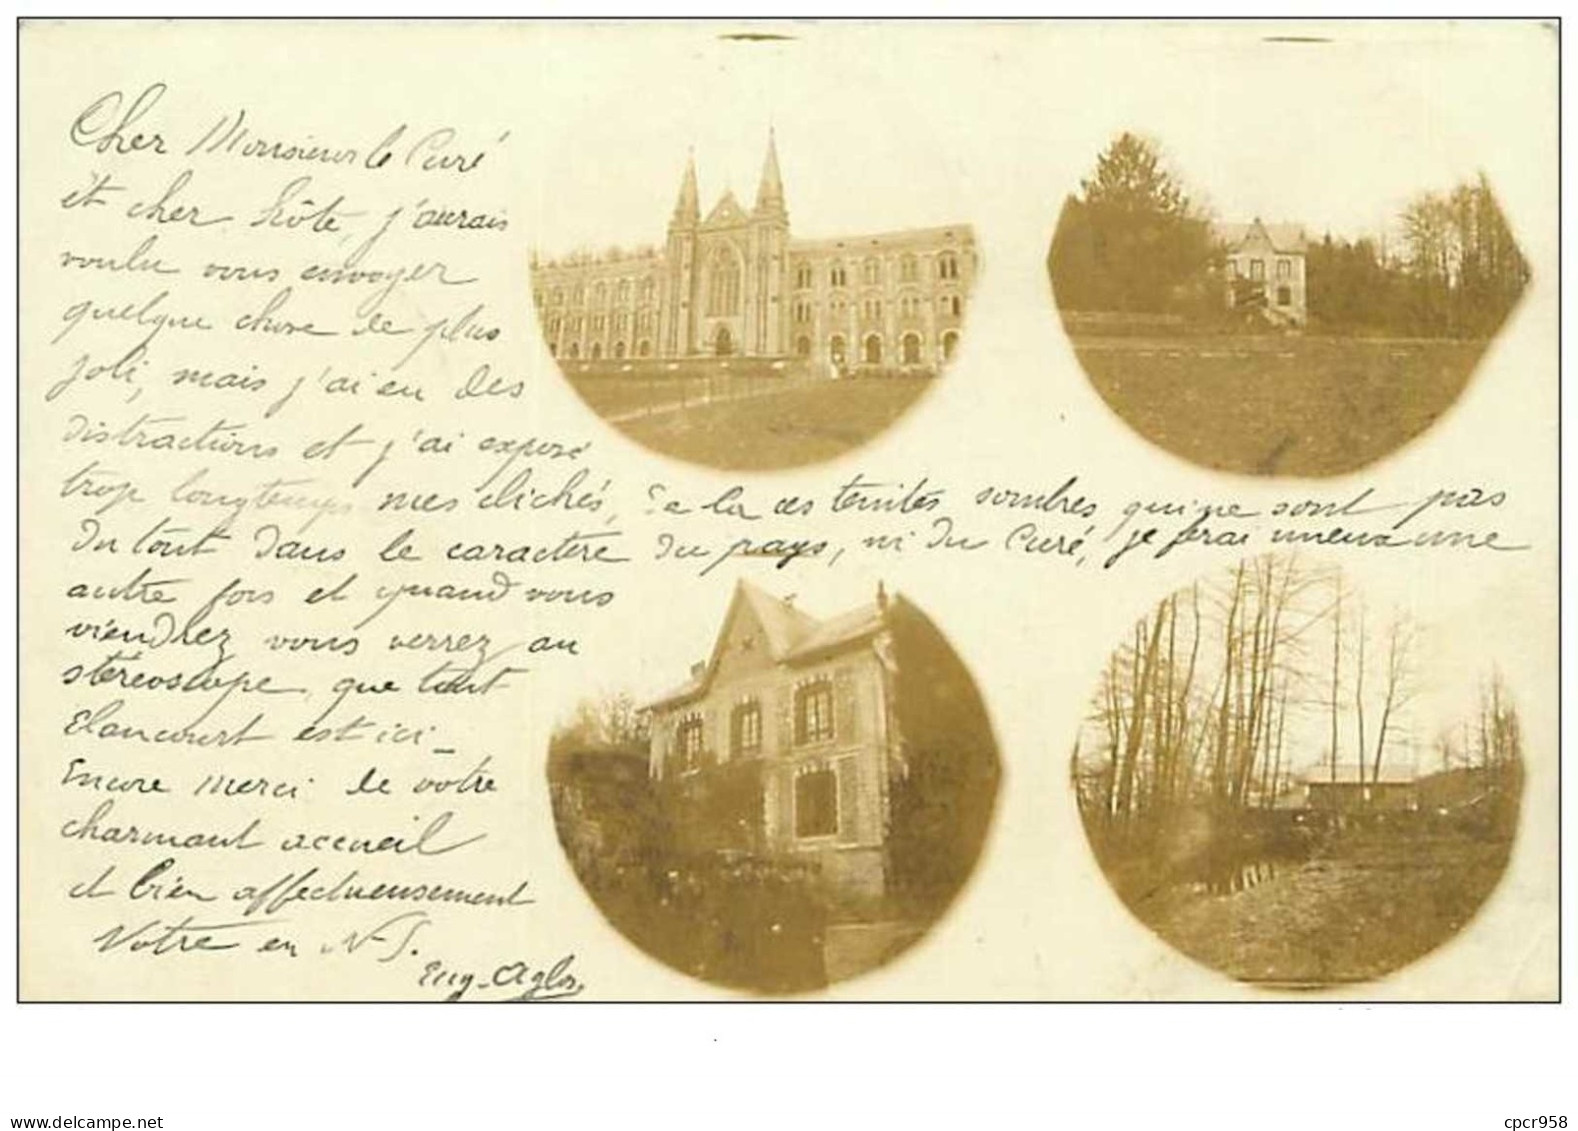 Cher Monsieur le Curé
et cher hôte, j'aurais
voulu vous envoyer
quelque chose de plus
joli, mais j'ai eu des
distractions et j'ai exposé
trop longtemps mes clichés, de la ces teintes sombres qui ne sont pas
du tout dans le caractère du pays, ni du Curé, je ferai mieux une
autre fois et quand vous
viendrez vous verrez au
stéréoscope que tout
Elancourt est ici_
Encore merci de votre
charmant accueil
et bien affectueusement
Votre en N-S.
Eug-
www.delcampe.net
cpcr958